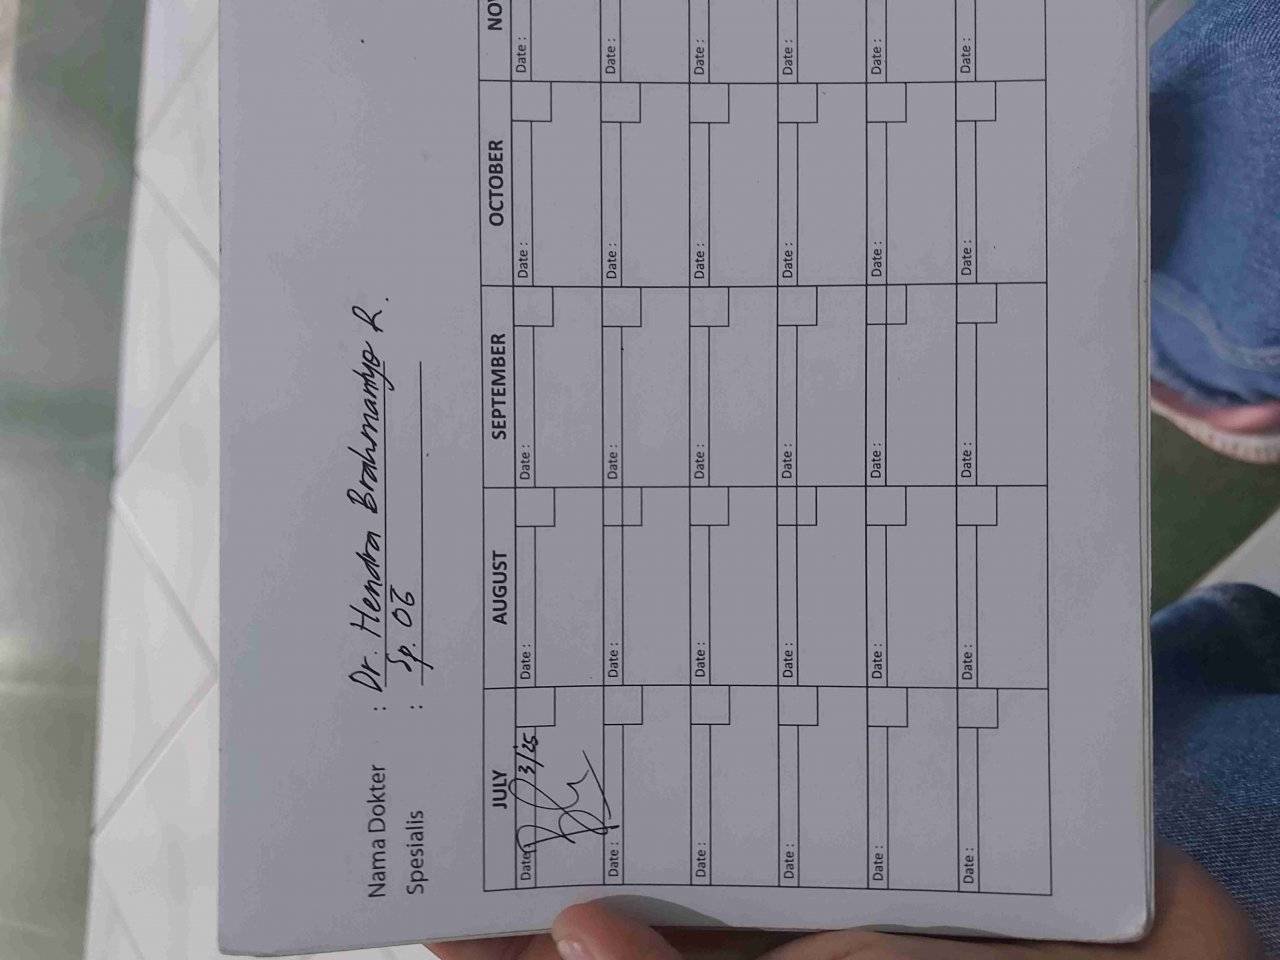 Nama Dokter : Dr. Hendra Brahmantyo R.
Spesialis : Sp. OG
JULY AUGUST SEPTEMBER OCTOBER NOV
Date: 3/25 Date : Date : Date : Date :
Date : Date : Date : Date : Date :
Date : Date : Date : Date : Date :
Date : Date : Date : Date : Date :
Date : Date : Date : Date : Date :
Date : Date : Date : Date : Date :